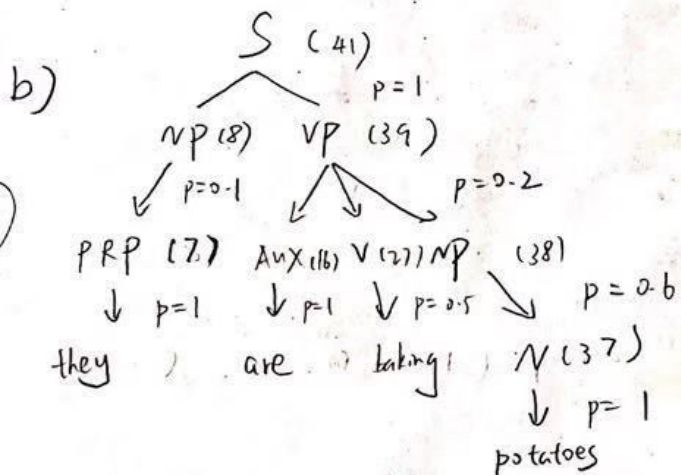 S (41)
b)
p=1
NP (8) VP (39)
p=0.1 p=0.2
PRP (7) Aux (16) V (27) NP (38)
p=1 p=1 p=0.5 p=0.6
they are baking N (37)
p=1
potatoes